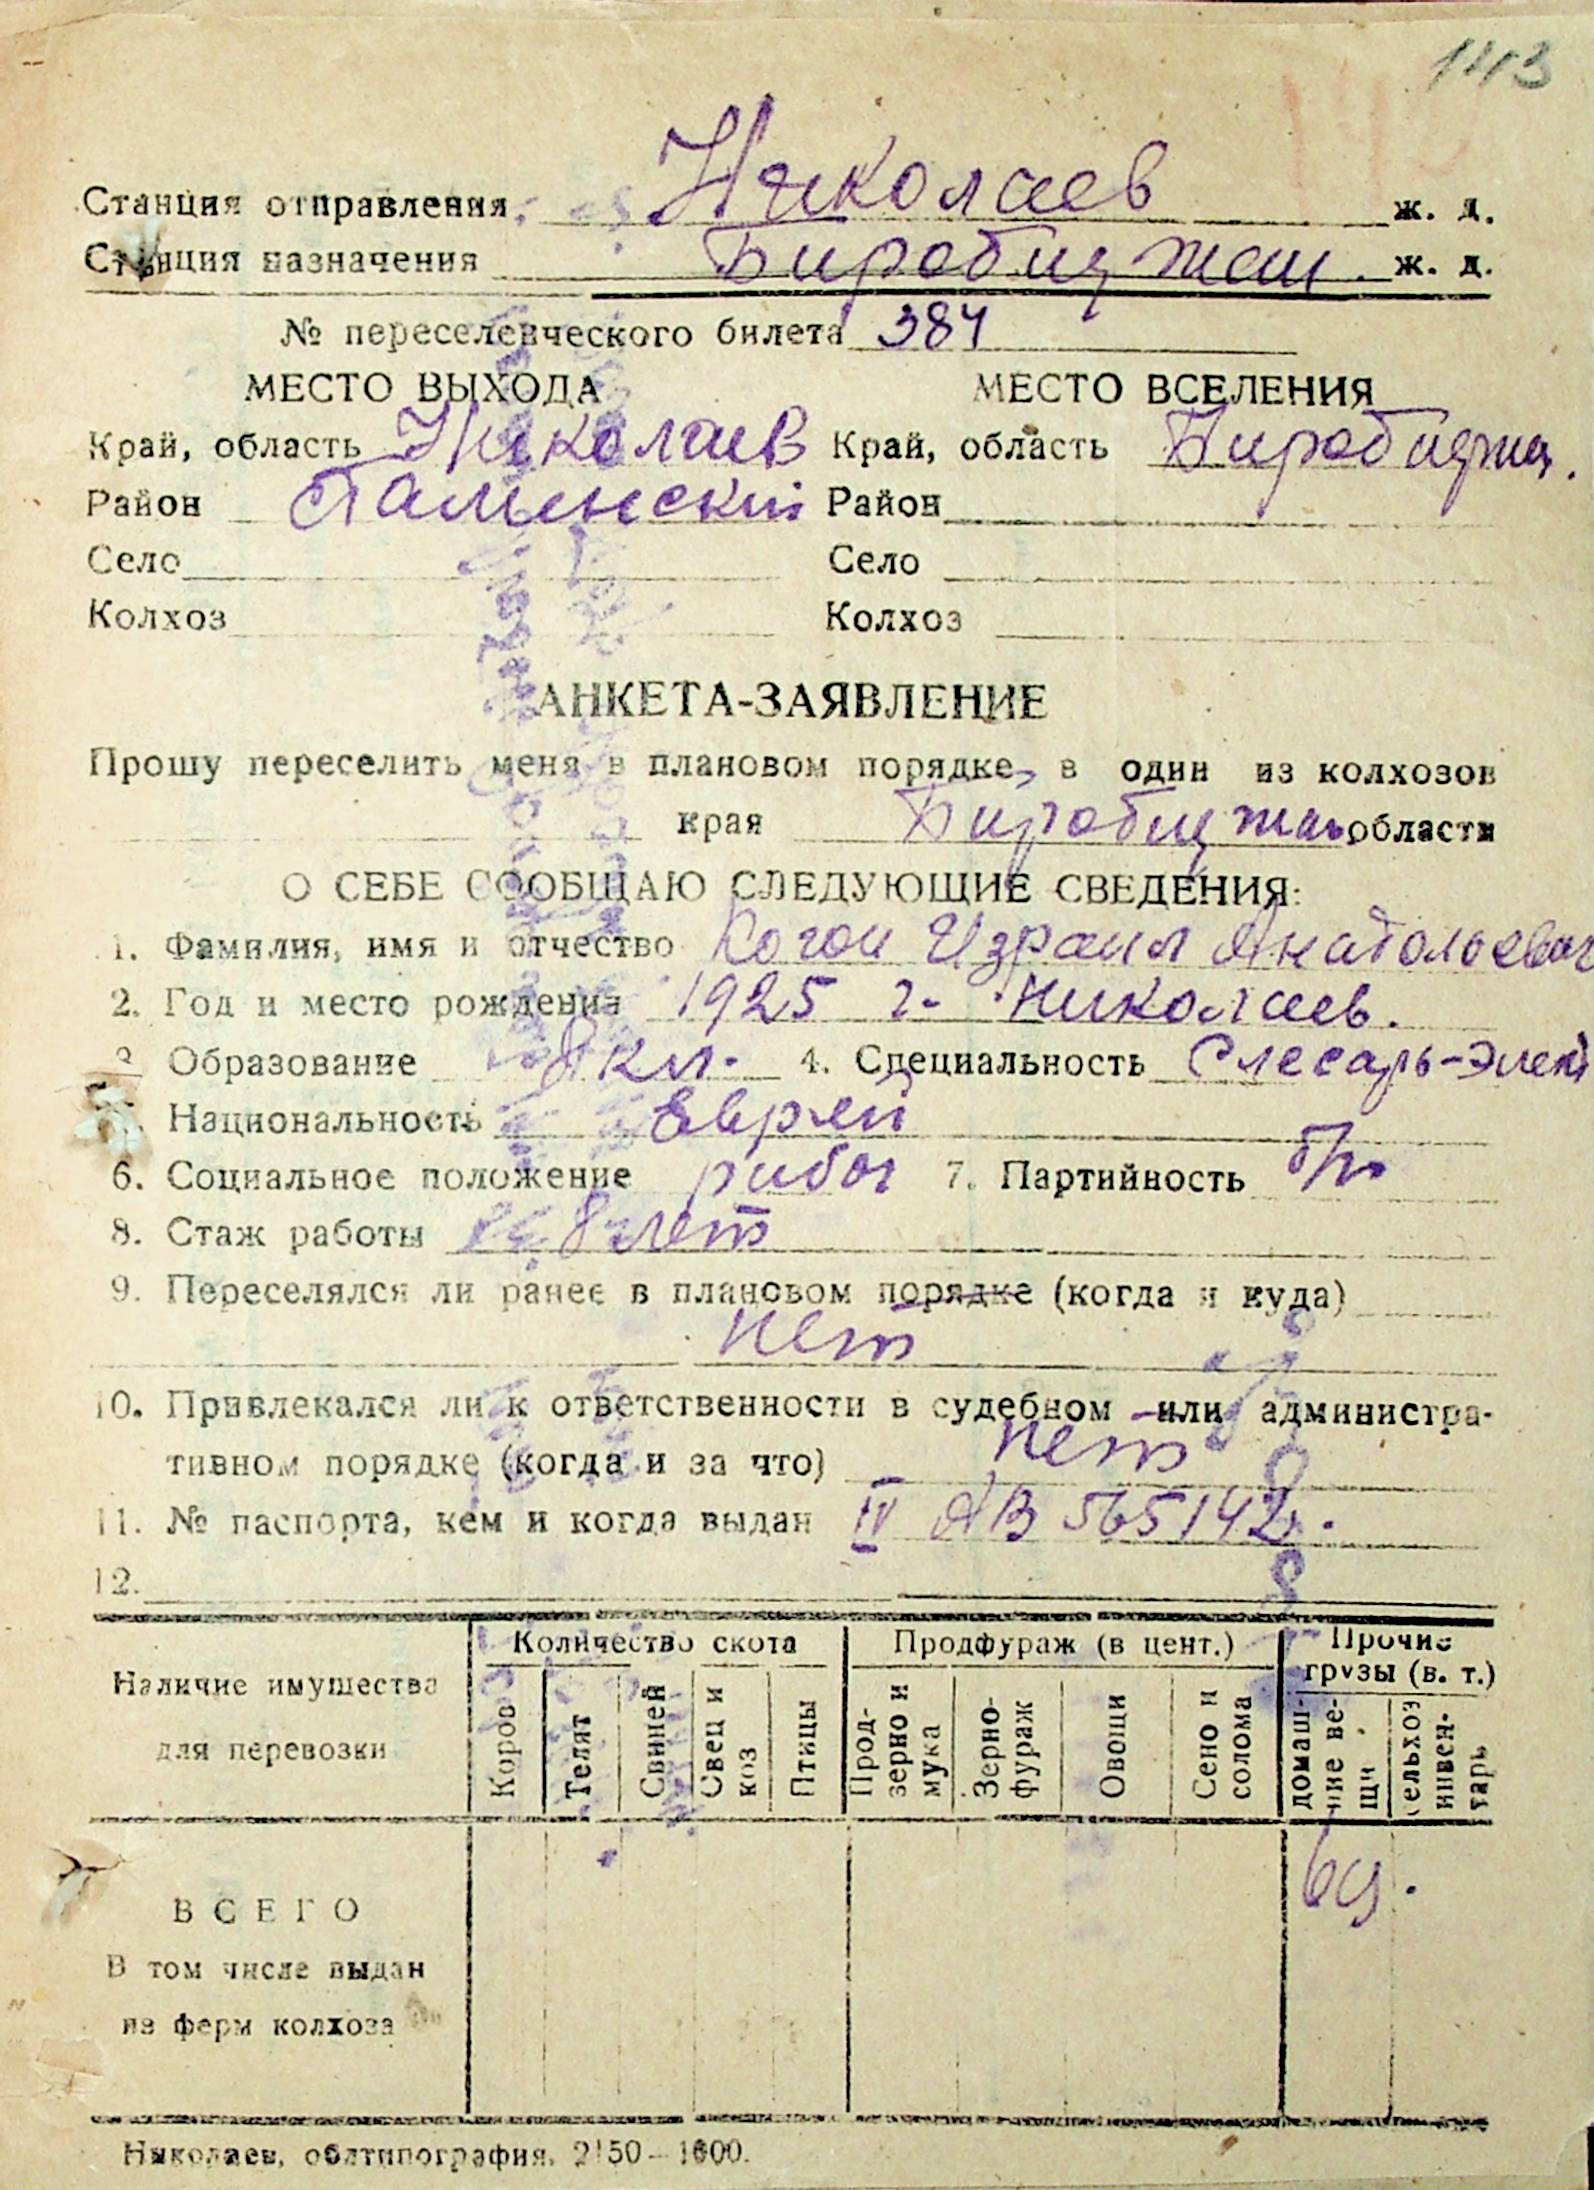 143
Станция отправления Николаев ж. д.
Станция назначения Биробиджан ж. д.
№ переселенческого билета 384
МЕСТО ВЫХОДА МЕСТО ВСЕЛЕНИЯ
Край, область Николаев Край, область Биробиджан.
Район Сталинский Район
Село Село
Колхоз Колхоз
АНКЕТА-ЗАЯВЛЕНИЕ
Прошу переселить меня в плановом порядке, в один из колхозов
края Биробиджан области
О СЕБЕ СООБЩАЮ СЛЕДУЮЩИЕ СВЕДЕНИЯ:
1. Фамилия, имя и отчество Коган Израил Анатольевич
2. Год и место рождения 1925 г. Николаев.
3 Образование 8 кл. 4. Специальность Слесарь-элект
Национальность Еврей
6. Социальное положение рабоч 7. Партийность б/п
8. Стаж работы 8 лет
9. Переселялся ли ранее в плановом порядке (когда и куда)
нет
10. Привлекался ли к ответственности в судебном или администра-
тивном порядке (когда и за что) нет
11. № паспорта, кем и когда выдан IV ЯВ 565142.
12.
Наличие имущества
для перевозки
Количество скота Продфураж (в цент.) Прочие
грузы (в. т.)
Коров Телят Свиней Овец и коз Птицы Прод-зерно и мука Зерно-фураж Овощи Сено и солома домаш-ние ве-щи сельхоз инвен-тарь
ВСЕГО
В том числе выдан
из ферм колхоза
Николаев, облтипография. 2150—1000.